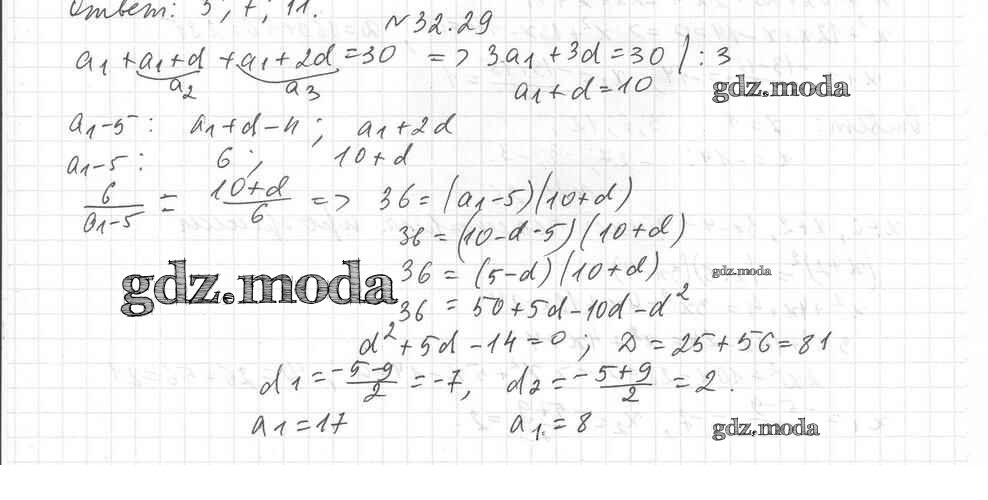 Ответ: 5; 7; 11.
№32.29
a₁ + a₁ + d + a₁ + 2d = 30 => 3a₁ + 3d = 30 | : 3
a₂ a₃ a₁ + d = 10 gdz.moda
a₁ - 5 : a₁ + d - 4 ; a₁ + 2d
a₁ - 5 : 6 ; 10 + d
6/(a₁ - 5) = (10 + d)/6 => 36 = (a₁ - 5)(10 + d)
36 = (10 - d - 5)(10 + d)
gdz.moda 36 = (5 - d)(10 + d) gdz.moda
36 = 50 + 5d - 10d - d²
d² + 5d - 14 = 0 ; D = 25 + 56 = 81
d₁ = (-5 - 9)/2 = -7, d₂ = (-5 + 9)/2 = 2.
a₁ = 17 a₁ = 8 gdz.moda